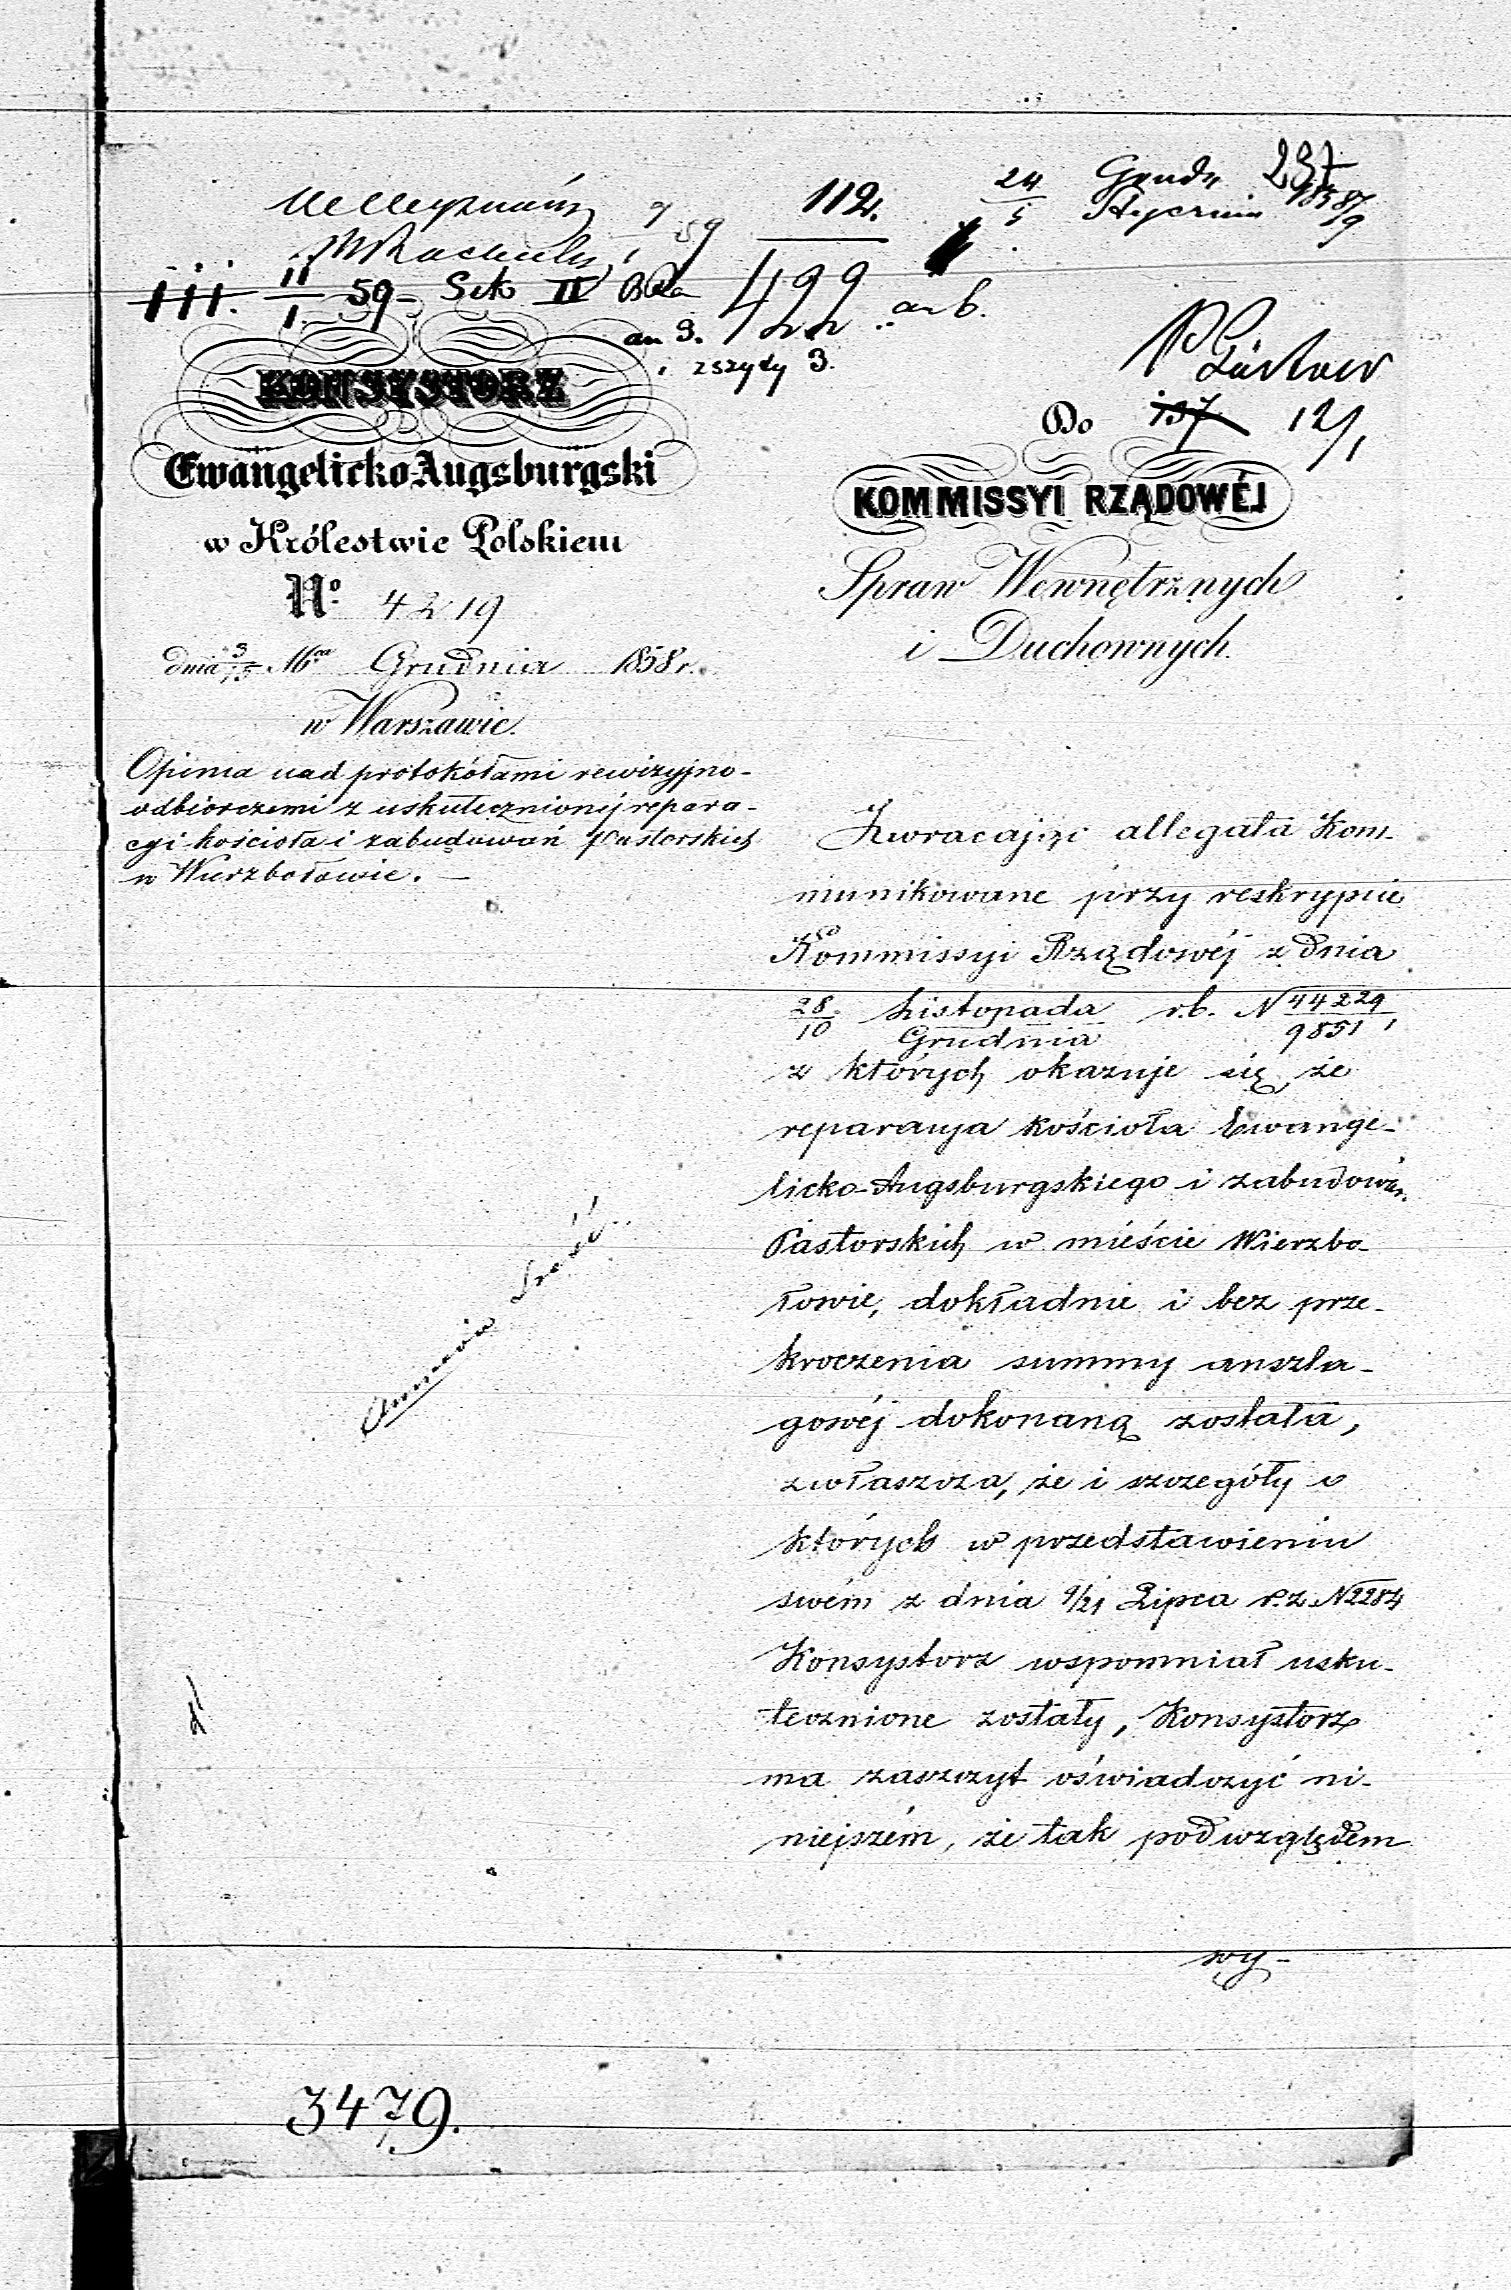 237
24 Grudn 1858/9
5 Stycznia
112.
9
59
III. II 59 - Sek II
I.
499
an 3.
an b.
i zszyty 3.
Gürtner
Do 137 12/1
KONSYSTORZ
Ewangelicko Augsburgski
w Królestwie Polskiem
No. 4219
dnia 3/15 Mca Grudnia 1858 r.
w Warszawie.
Opinia nad protokółami rewizyjno-
odbiorczemi z uskutecznionéj repara-
cyi kościoła i zabudowań Pastorskich
w Wierzbołowie. —
KOMMISSYI RZĄDOWÉJ
Spraw Wewnętrznych
i Duchownych.
Zwracając allegata kom-
munikowane przy reskrypcie
Kommissyi Rządowéj z dnia
28 Listopada r.b. N 44229
10 Grudnia 9851,
z których okazuje się, że
reparacya kościoła Ewange-
licko-Augsburgskiego i zabudowań
Pastorskich w mieście Wierzbo-
łowie, dokładnie i bez prze-
kroczenia summy anszla-
gowéj dokonaną została,
zwłaszcza, że i szczegóły o
których w przedstawieniu
swém z dnia 9/21 Lipca r.z. N 2284
Konsystorz wspomniał usku-
tecznione zostały, Konsystorz
ma zaszczyt oświadczyć ni-
niejszém, że tak pod względem
wy-
3479.